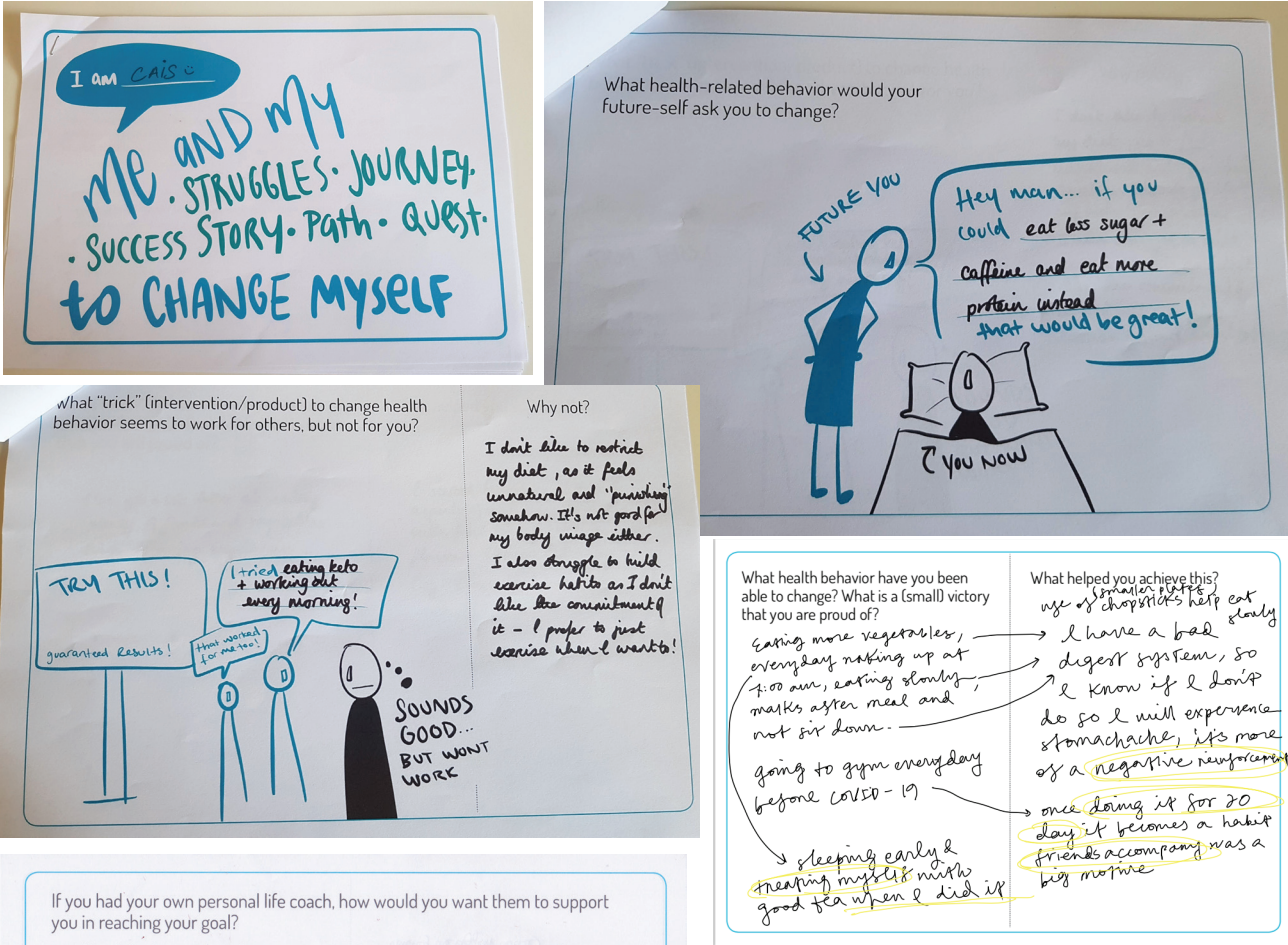 I am CAIS
ME AND MY
• STRUGGLES • JOURNEY •
• SUCCESS STORY • Path • QUEST •
to CHANGE MYSELF
What health-related behavior would your
future-self ask you to change?
FUTURE YOU
Hey man... if you
could eat less sugar +
caffeine and eat more
protein instead
that would be great!
YOU NOW
What "trick" (intervention/product) to change health
behavior seems to work for others, but not for you?
TRY THIS!
guaranteed Results!
that worked
for me too!
I tried eating keto
+ working out
every morning!
SOUNDS
GOOD...
BUT WONT
WORK
Why not?
I don't like to restrict
my diet, as it feels
unnatural and "punishing"
somehow. It's not good for
my body image either.
I also struggle to build
exercise habits as I don't
like the commitment of
it – I prefer to just
exercise when I want to!
What health behavior have you been
able to change? What is a (small) victory
that you are proud of?
Eating more vegetables,
everyday waking up at
7:00 am, eating slowly,
walks after meal and
not sit down.
going to gym everyday
before COVID-19
sleeping early &
treating myself with
good tea when I did it
What helped you achieve this?
(smaller plates)
use of chopsticks help eat
slowly
I have a bad
digest system, so
I know if I don't
do so I will experience
stomachache, it's more
of a negative reinforcement
once doing it for 20
day it becomes a habit
friends accompany was a
big motive
If you had your own personal life coach, how would you want them to support
you in reaching your goal?